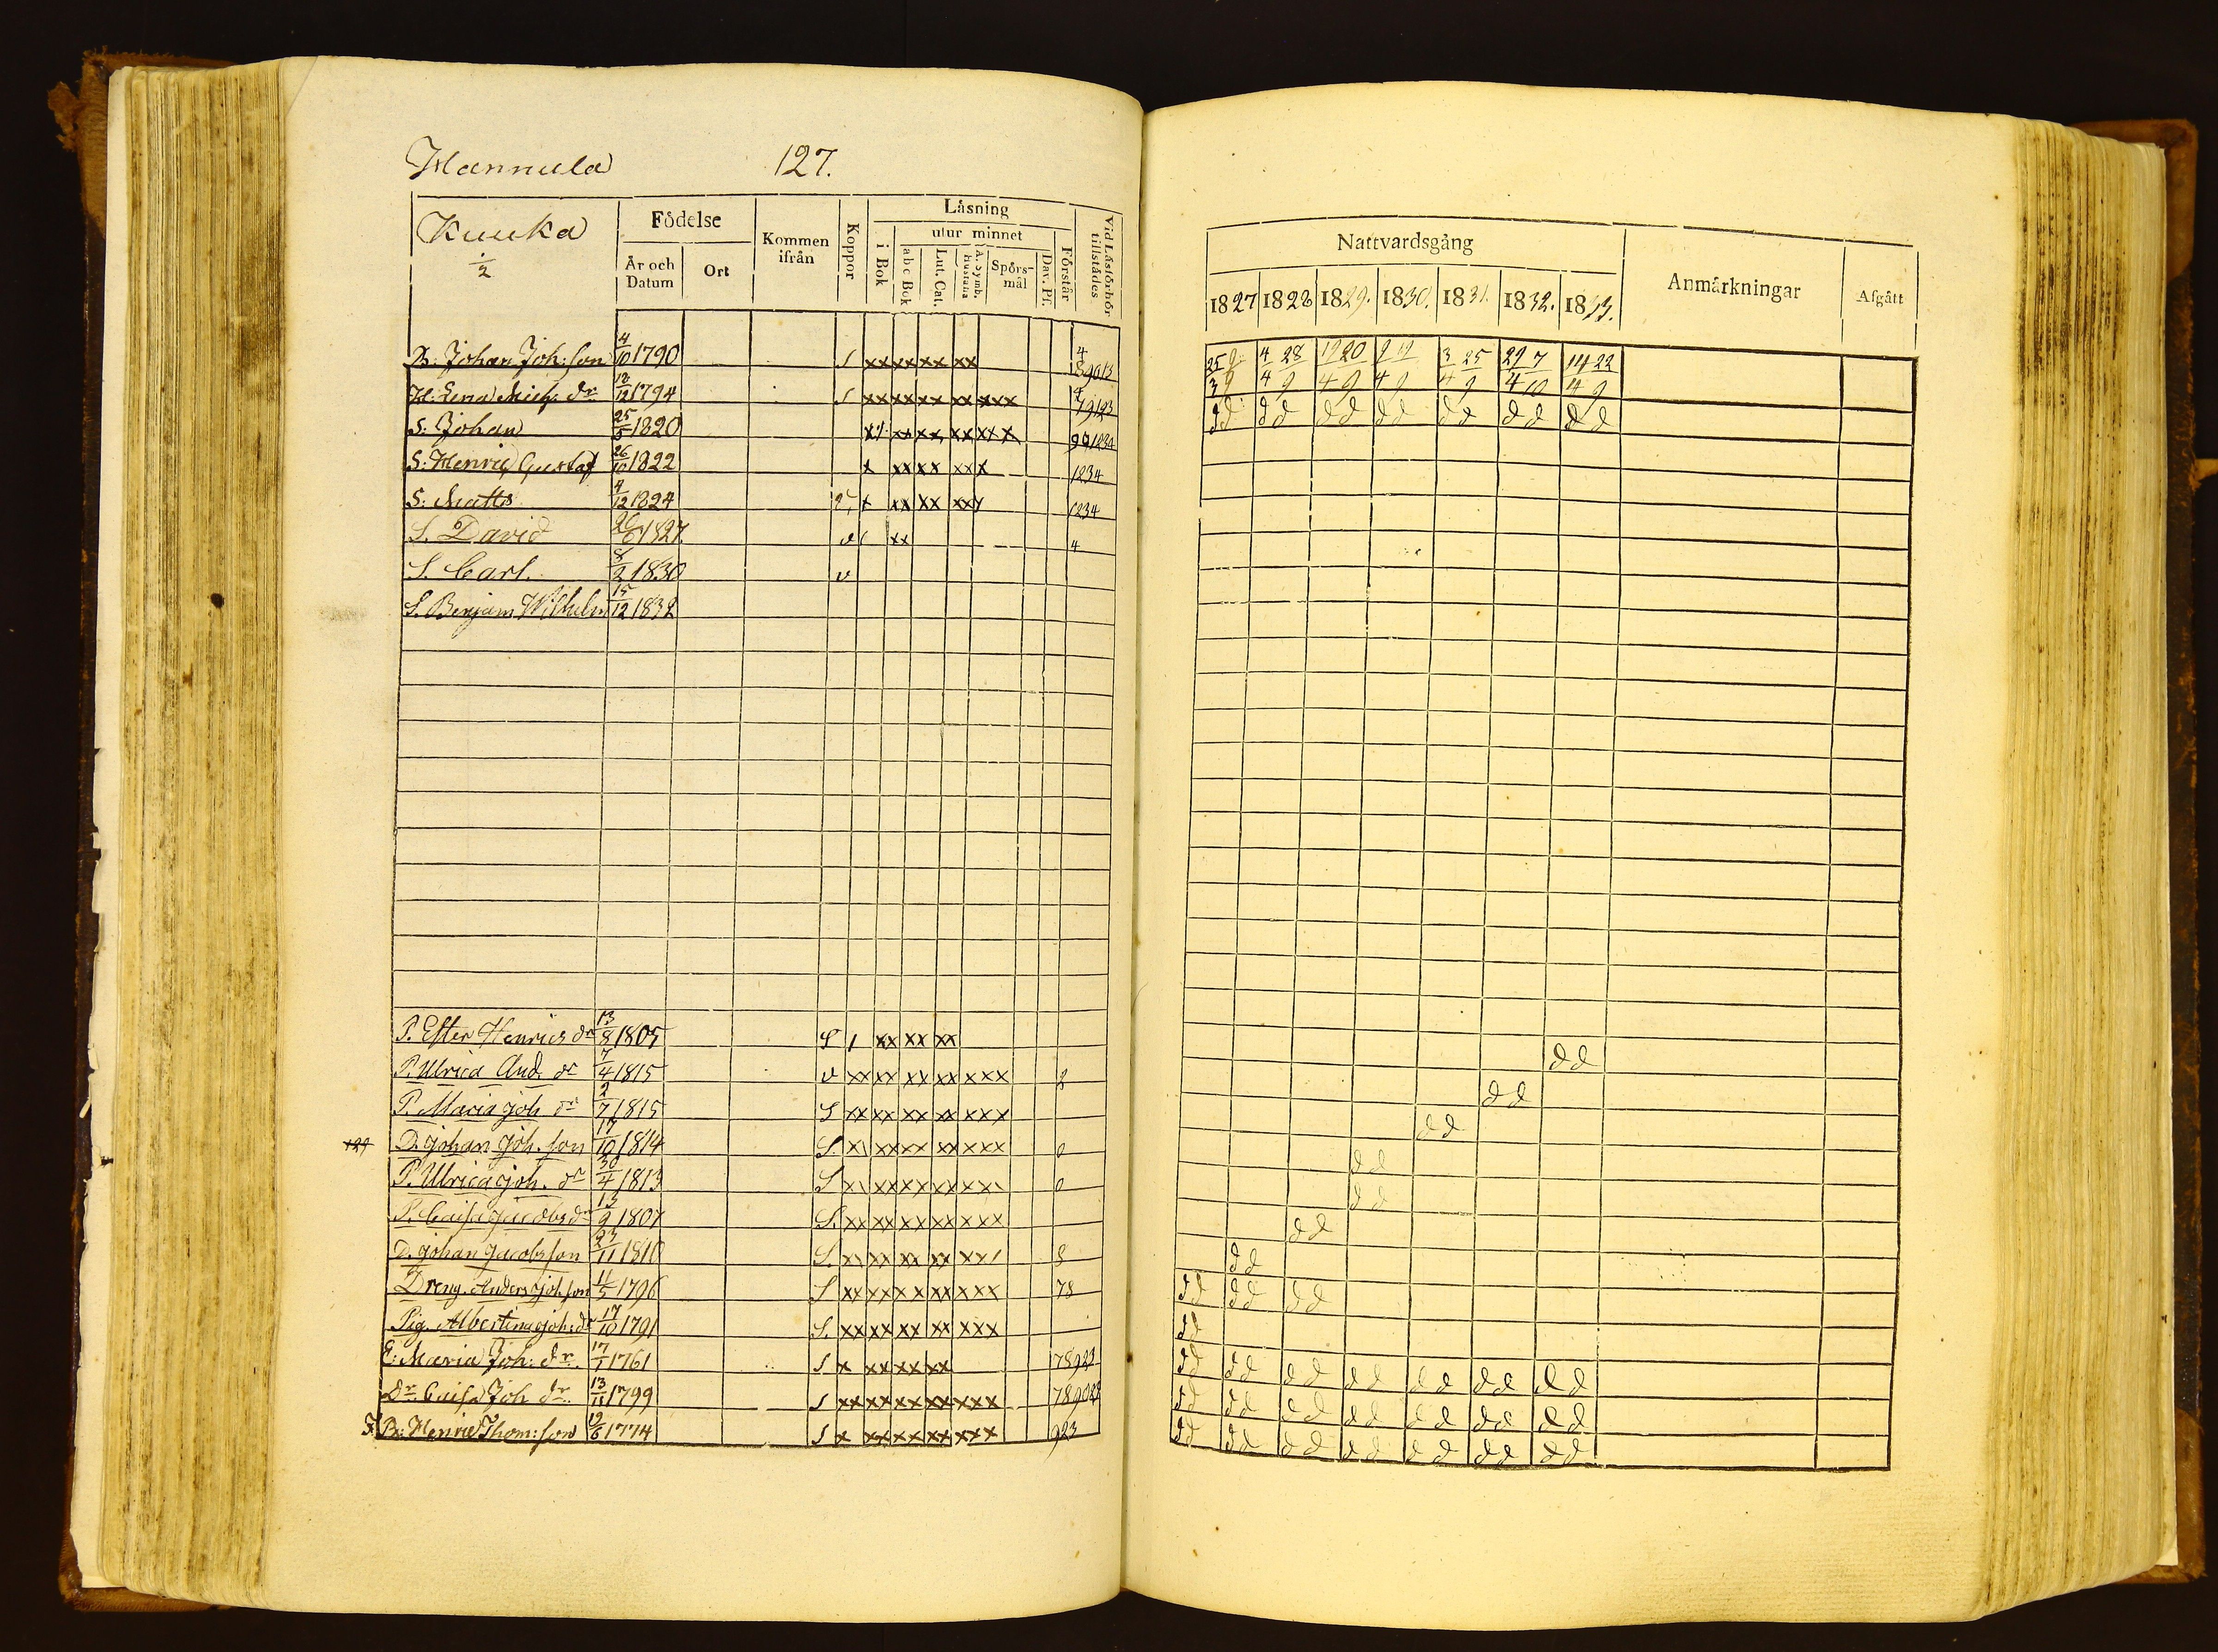 Hannula 127.
Kuuka
1/2
Födelse
År och Datum
Ort
Kommen ifrån
Koppor
Läsning
i Bok
utur minnet
abc Bok
Lut. Cat.
A. Symb. Hustafla
Spörsmål
Dav. Ps.
Förstår
Vid Läsförhör tillstädes
B: Johan Joh: son 4/10 1790 s xx xx xx xx
H: Lena Mich. dr 18/12 1794 s xx xx xx xx xxx
S: Johan 25/5 1820
S: Henric Gustaf 26/10 1822 x xx xx xxx 1234
S: Matts 4/12 1824 x xx xx xxx 1234
S. David 26/6 1827 v xx 4
S. Carl. 8/2 1830 v
S. Benjam. Wilhelm 15/12 1832
P. Ester Henrics dr 13/8 1805 S xx xx xx
P. Ulrica And. dr 7/4 1815 v xx xx xx xx xxx
P. Maria Joh. dr 2/7 1815 S xx xx xx xx xxx
129 D. Johan Joh. son 17/10 1814 S. xx xx xx xxx 0
P. Ulrica Joh. dr 30/4 1813 S 0
P. Caisa Jacobs dr 13/9 1807 S. xx xx xx xx xxx
D. Johan Jacobsson 23/11 1810 S. 8
Dreng. Anders Joh. son 11/5 1796 S xx xx xx xx xxx 78
Pig. Albertina Joh: dr 17/10 1791 S. xx xx xx xx xxx
E: Maria Joh: dr. 17/1 1761 s x xx xx xx
Dr. Caisa Joh dr. 13/11 1799 s xx xx xx xx xxx
B: Henric Thom: son 19/6 1774 s x xx xx xx xxx 923
Nattvardsgång
1827 1828 1829. 1830. 1831. 1832. 1833.
Anmärkningar
Afgått
4 28 19 20 3 25 29 7 14 22
4 9 4 9 4 9 4 9 4 10 4 9
dd dd dd dd dd dd dd
dd
dd
dd
dd
dd
dd
dd
dd dd dd
dd
dd dd dd dd dd dd dd
dd dd dd dd dd dd dd
dd dd dd dd dd dd dd